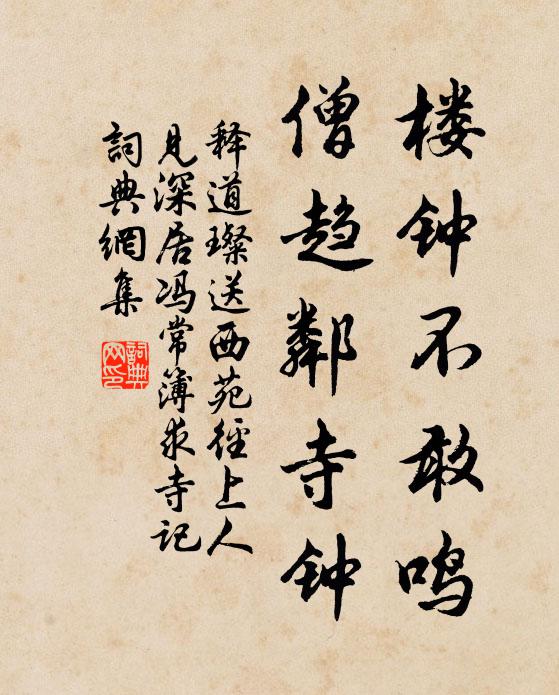 楼钟不敢鸣
僧趋鄰寺钟
释道璨送西苑径上人
见深居冯常簿求寺记
詞典網集
詞典
网印